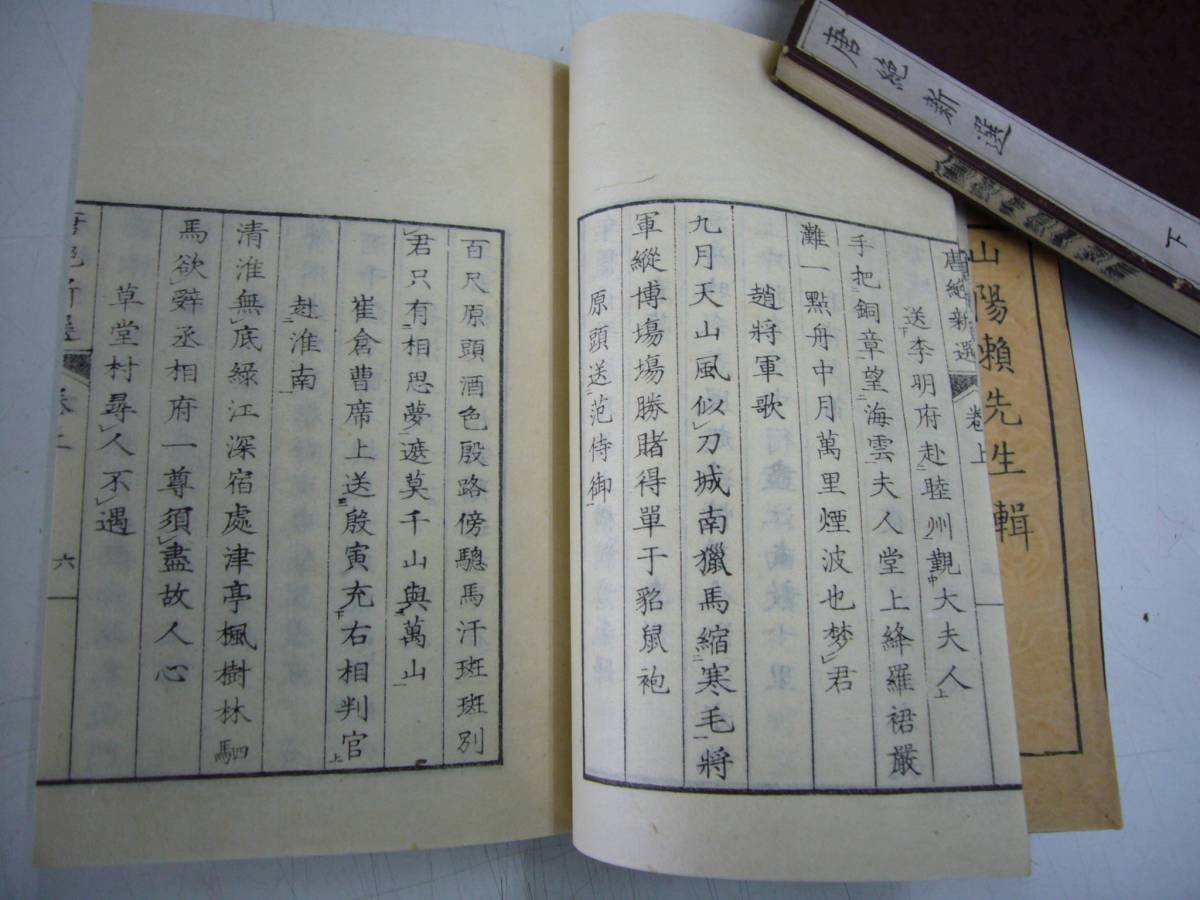 唐絶新選
下
山陽頼先生輯
唐絶新選 卷上
送李明府赴睦州覲大夫人
手把銅章望海雲夫人堂上絳羅裙嚴
灘一點舟中月萬里煙波也梦君
趙將軍歌
九月天山風似刀城南獵馬縮寒毛將
軍縱博塲塲勝賭得單于貂鼠袍
原頭送范侍御
百尺原頭酒色殷路傍驄馬汗斑斑別
君只有相思夢遮莫千山與萬山
崔倉曹席上送殷寅充右相判官
赴淮南
清淮無底緑江深宿處津亭楓樹林駟
馬欲辤丞相府一尊須盡故人心
草堂村尋人不遇
六